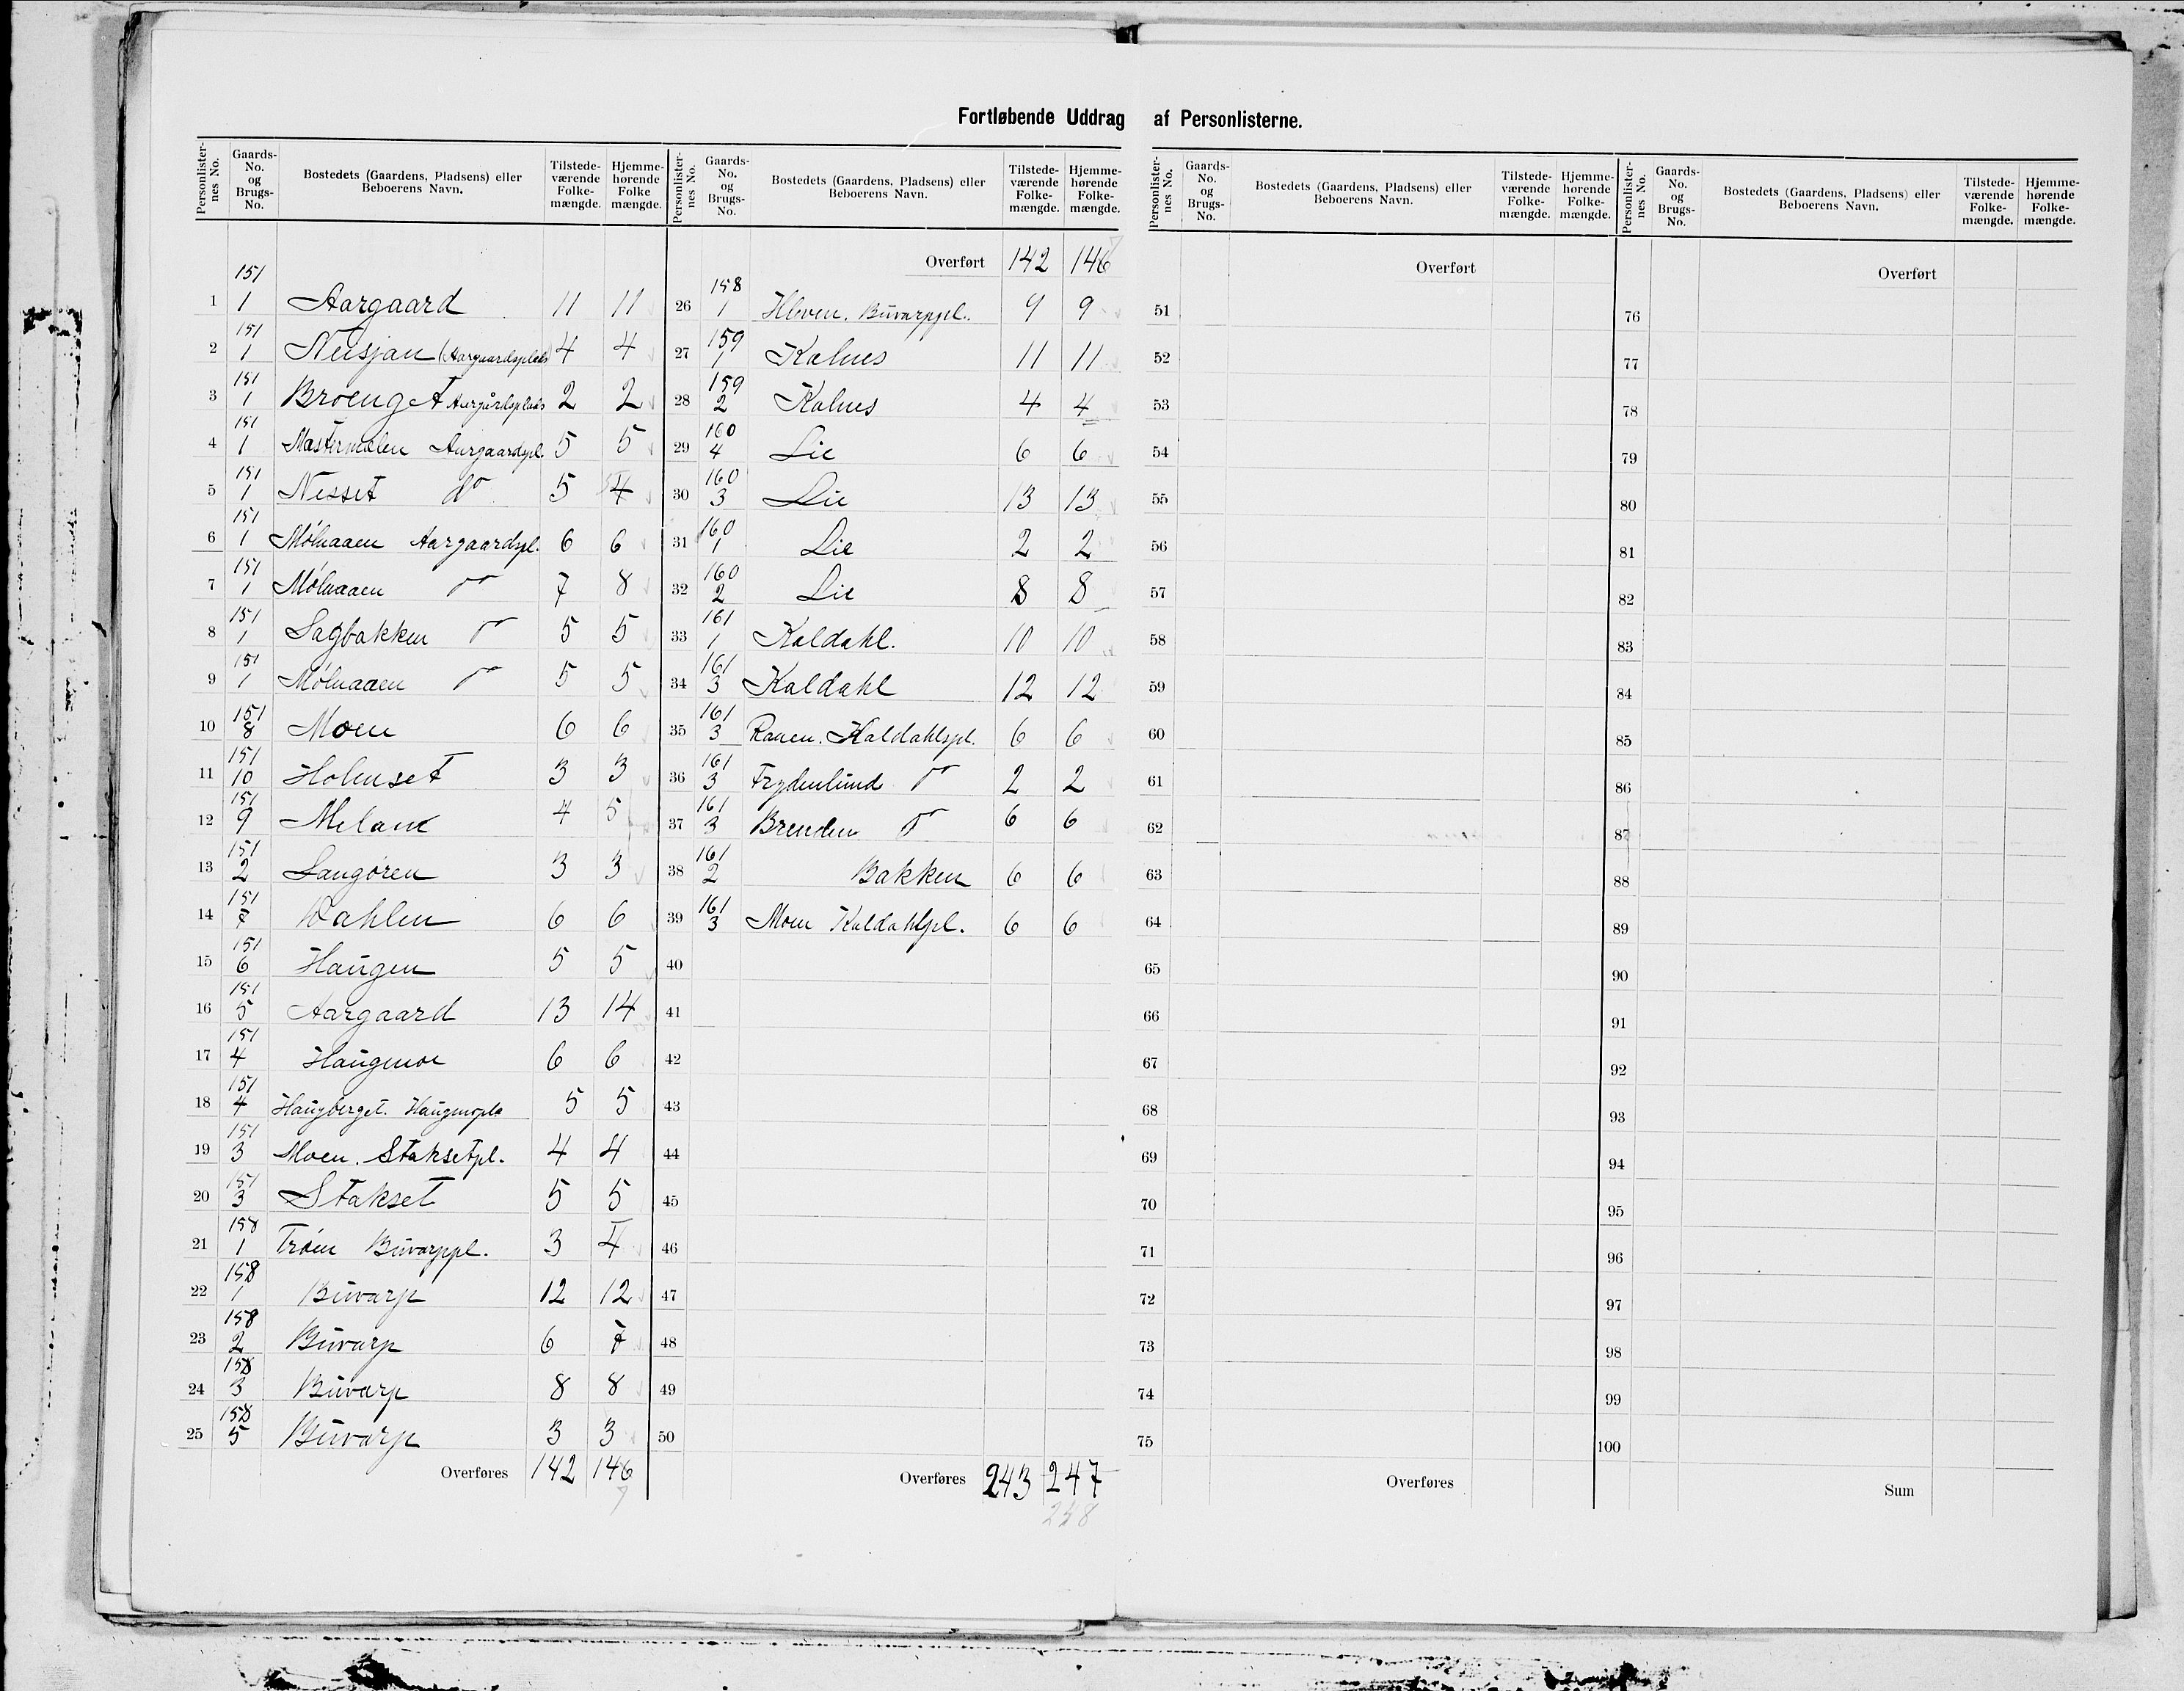 Fortløbende Uddrag af Personlisterne.
Personlisternes No. | Gaards-No. og Brugs-No. | Bostedets (Gaardens, Pladsens) eller Beboerens Navn. | Tilstedeværende Folkemængde. | Hjemmehørende Folkemængde.
1 | 151 1 | Aargaard | 11 | 11
2 | 151 1 | Neisjan (Aargaardsplads | 4 | 4
3 | 151 1 | Broenget Aargårdsplads | 2 | 2
4 | 151 1 | Mastermolen Aurgaardspl. | 5 | 5
5 | 151 1 | Nesset do | 5 | 4
6 | 151 1 | Mólnaaen Aargaardspl. | 6 | 6
7 | 151 1 | Mólnaaen do | 7 | 8
8 | 151 1 | Sagbakken do | 5 | 5
9 | 151 1 | Mólnaaen do | 5 | 5
10 | 151 8 | Moen | 6 | 6
11 | 151 10 | Holmset | 3 | 3
12 | 151 9 | Meland | 4 | 5
13 | 151 2 | Langøren | 3 | 3
14 | 151 7 | Dahlen | 6 | 6
15 | 151 6 | Haugen | 5 | 5
16 | 151 5 | Aargaard | 13 | 14
17 | 151 4 | Haugmoe | 6 | 6
18 | 151 4 | Haugberget. Haugmopls | 5 | 5
19 | 151 3 | Moen. Staksetpl. | 4 | 4
20 | 151 3 | Stakset | 5 | 5
21 | 158 1 | Trøen Buvarppl. | 3 | 4
22 | 158 1 | Buvarp | 12 | 12
23 | 158 2 | Buvarp | 6 | 7
24 | 158 3 | Buvarp | 8 | 8
25 | 158 5 | Buvarp | 3 | 3
Overføres | 142 | 146
7
Personlisternes No. | Gaards-No. og Brugs-No. | Bostedets (Gaardens, Pladsens) eller Beboerens Navn. | Tilstedeværende Folkemængde. | Hjemmehørende Folkemængde.
Overført | 142 | 146 7
26 | 158 1 | Hleven. Buvarppl. | 9 | 9
27 | 159 1 | Kalnes | 11 | 11
28 | 159 2 | Kalnes | 4 | 4
29 | 160 4 | Lie | 6 | 6
30 | 160 3 | Lie | 13 | 13
31 | 160 1 | Lie | 2 | 2
32 | 160 2 | Lie | 8 | 8
33 | 161 1 | Kaldahl. | 10 | 10
34 | 161 3 | Kaldahl | 12 | 12
35 | 161 3 | Raaen. Kaldahlspl. | 6 | 6
36 | 161 3 | Frydenlund do | 2 | 2
37 | 161 3 | Brenden do | 6 | 6
38 | 161 2 | Bakken | 6 | 6
39 | 161 3 | Moen Kaldahlpl. | 6 | 6
40
41
42
43
44
45
46
47
48
49
50
Overføres | 243 | 247
248
Personlisternes No. | Gaards-No. og Brugs-No. | Bostedets (Gaardens, Pladsens) eller Beboerens Navn. | Tilstedeværende Folkemængde. | Hjemmehørende Folkemængde.
Overført
51
52
53
54
55
56
57
58
59
60
61
62
63
64
65
66
67
68
69
70
71
72
73
74
75
Overføres
Personlisternes No. | Gaards-No. og Brugs-No. | Bostedets (Gaardens, Pladsens) eller Beboerens Navn. | Tilstedeværende Folkemængde. | Hjemmehørende Folkemængde.
Overført
76
77
78
79
80
81
82
83
84
85
86
87
88
89
90
91
92
93
94
95
96
97
98
99
100
Sum